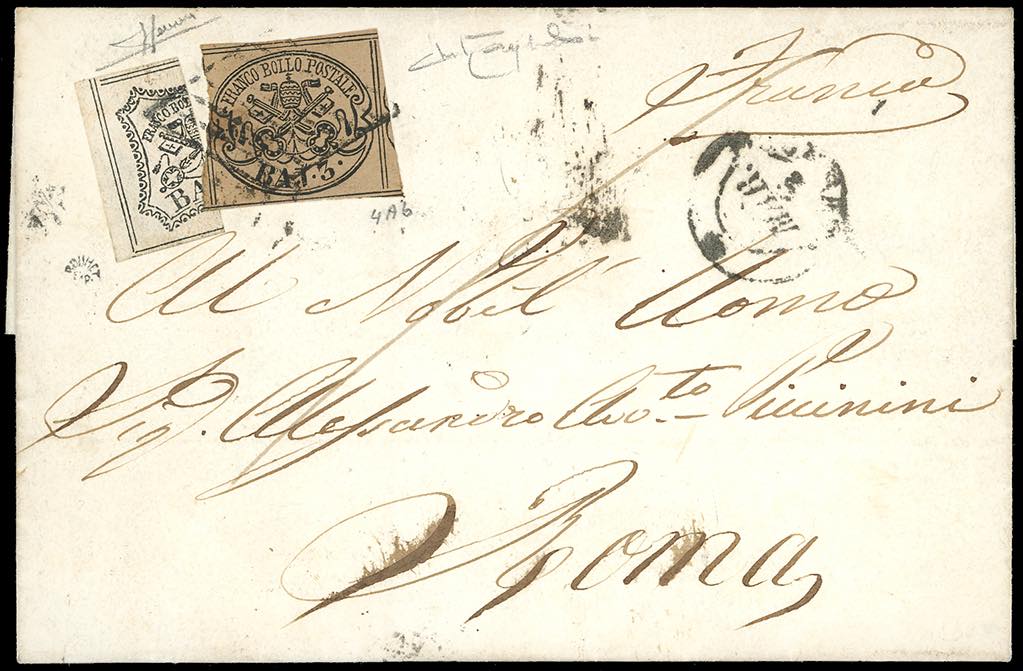 Franca
FRANCO BOLLO POSTALE
BAJ. 3.
FRANCO BOL
BA
4Ab
Al Nobil' Uomo
Sig. Alessandro Avv.to Piccinini
Roma